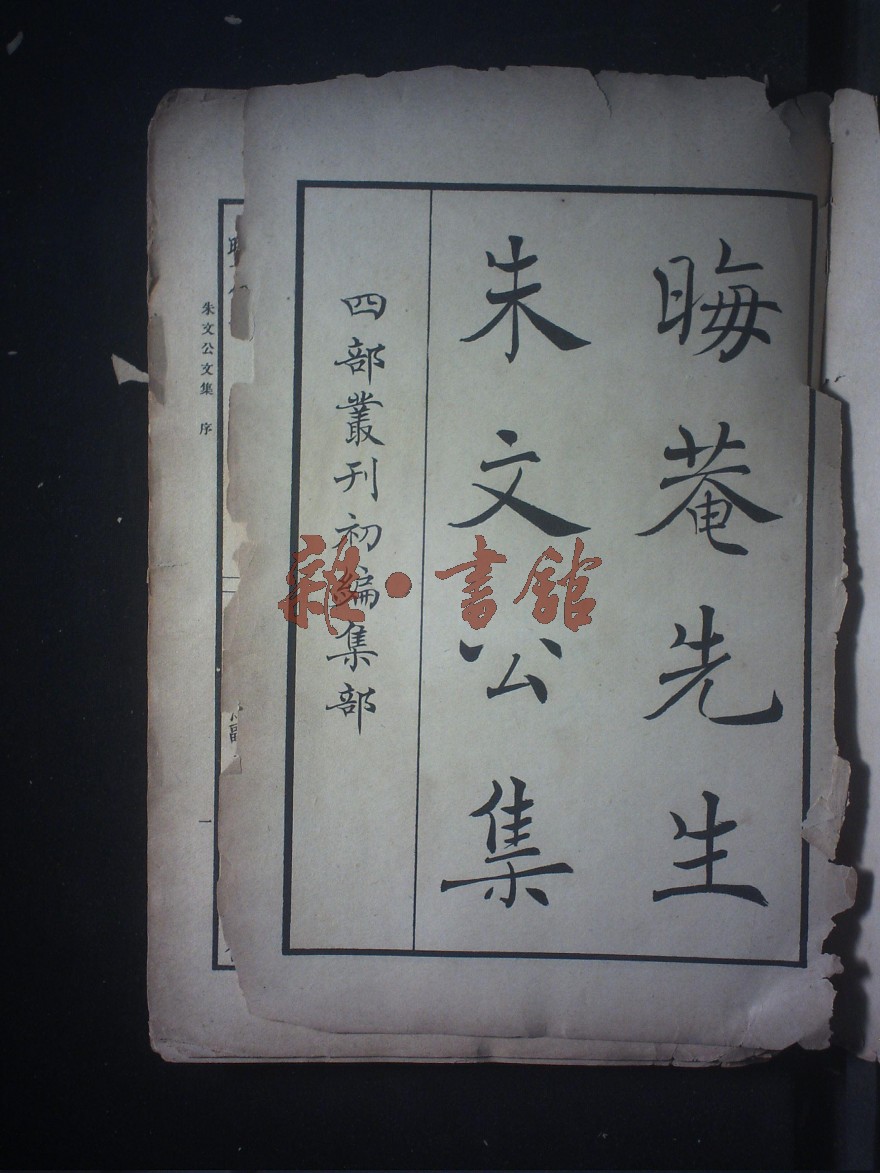 晦菴先生
朱文公集
四部叢刊初編集部
朱文公文集 序
一
雜·書舘